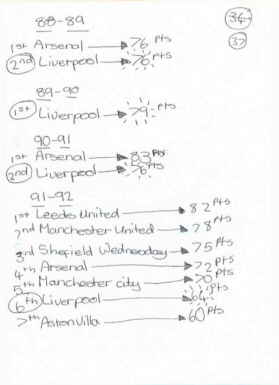 88-89
34
37
1st Arsenal → 76 pts
2nd Liverpool → 76 pts
89-90
1st Liverpool → 79 pts
90-91
1st Arsenal → 83 pts
2nd Liverpool → 76 pts
91-92
1st Leeds United → 82 pts
2nd Manchester United → 78 pts
3rd Shefield Wednesday → 75 pts
4th Arsenal → 72 pts
5th Manchester city → 70 pts
6th Liverpool → 64 pts
7th Aston Villa → 60 pts